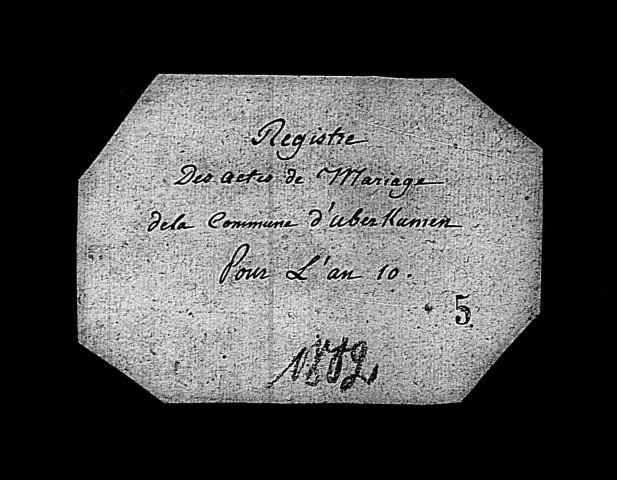 Registre
Des actes de Mariage
dela Commune d'uberkumen
Pour L'an 10.
5